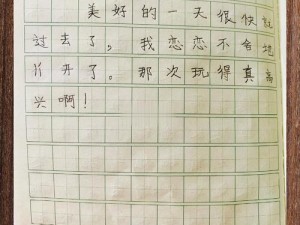 美好的一天很快就
过去了，我恋恋不舍地
离开了。那次玩得真高
兴啊！